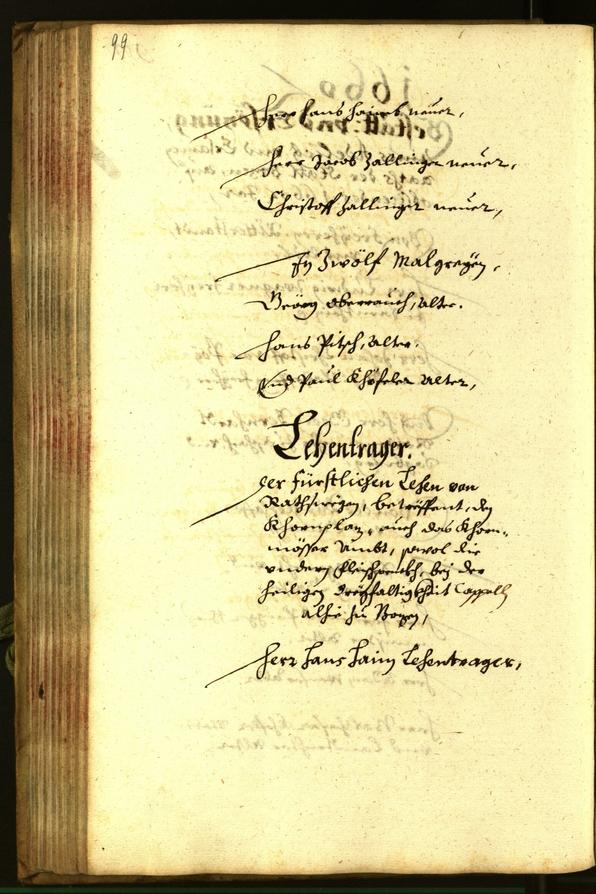 99
Herr Hans Jacob neuer,
Herr Jacob Zallinger neuer,
Christoff Zallinger neuer,
In Zwölf Malgreyen,
Geörg Oberrauch, alter.
Hans Pitsch, alter.
Und Paul Khöfeler alter,
Lehentrager.
Der fürstlichen Lehen von
Rathswegen, betreffent, den
Khornplaz, auch das Khorn-
mösser Ambt, sowol die
undern Fleischpenkh, bej der
heiligen Dreyfaltigkheit Cappelln
alhie zu Bozen,
Herr Hans Haim Lehentrager,